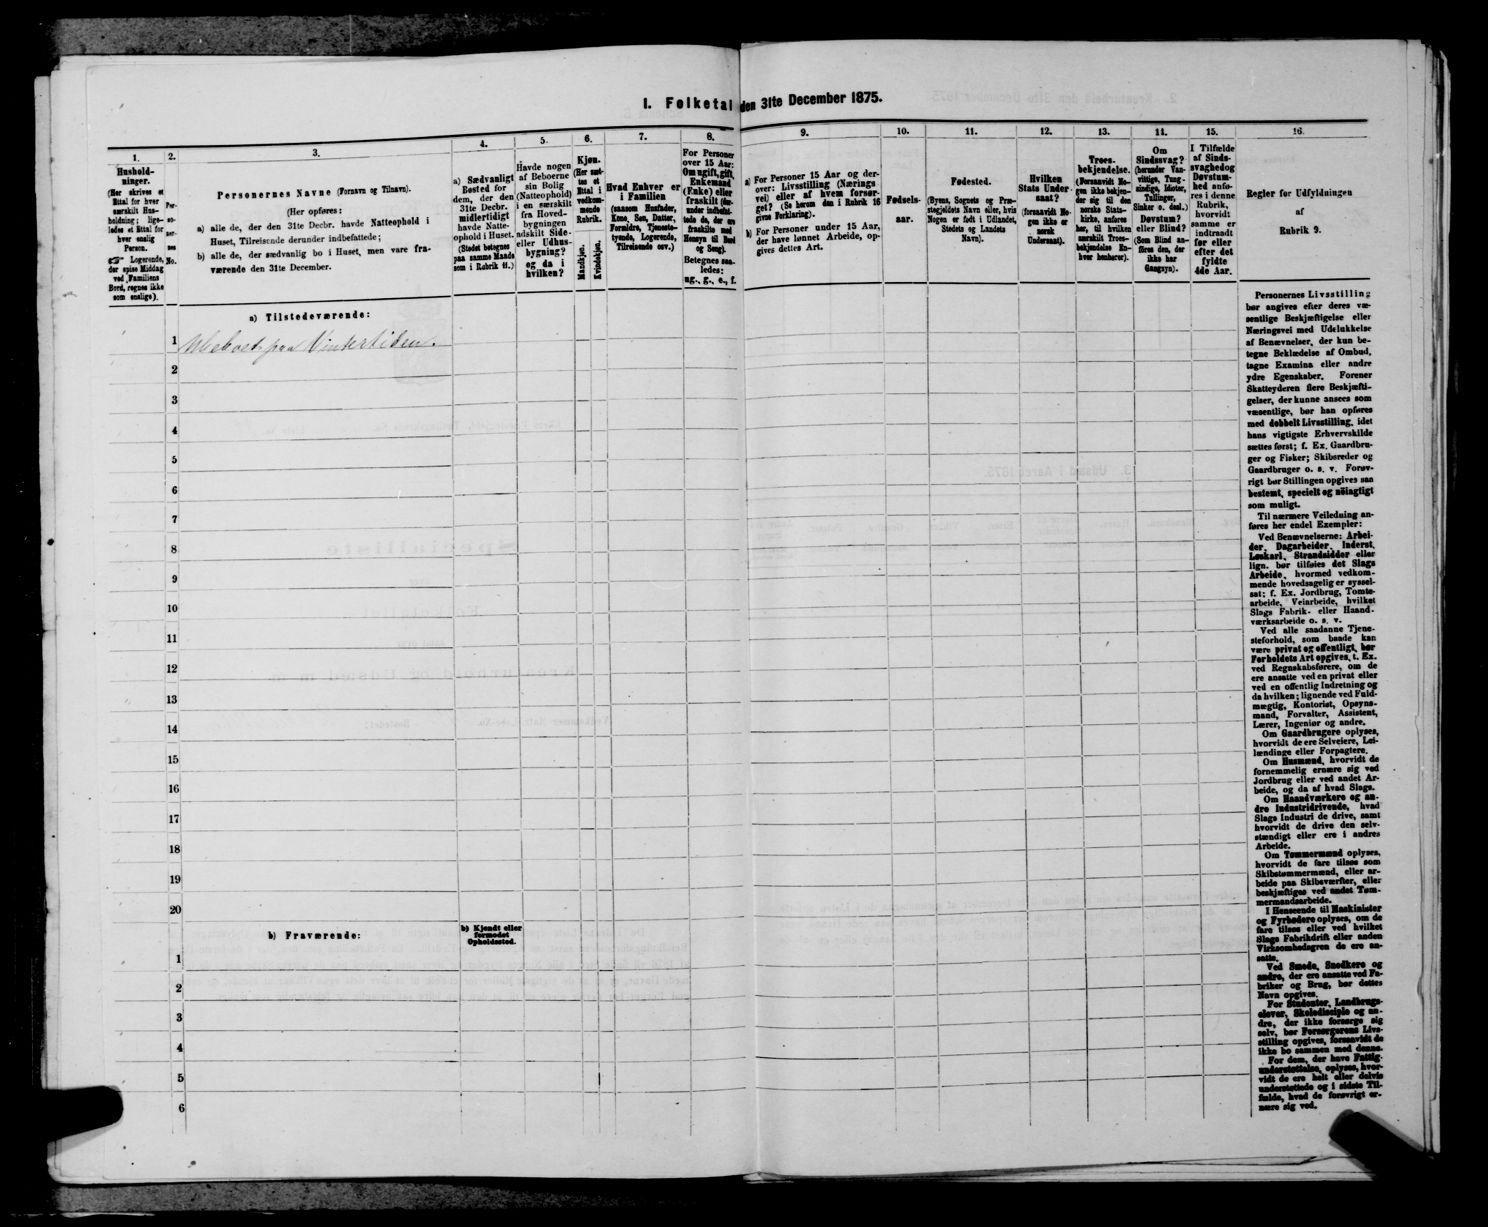 I. Folketal den 31te December 1875.
1.
Hushold-
ninger.
(Her skrives et
Ettal for hver
særskilt Hus-
holdning; lige-
ledes et Ettal for
hver enslig
Person.
Logerende,
der spise Middag
ved Familiens
Bord, regnes ikke
som enslige).
2.
Per-
so-
ner-
nes
No.
3.
Personernes Navne (Fornavn og Tilnavn).
(Her opføres:
a) alle de, der den 31te Decbr. havde Natteophold i
Huset, Tilreisende derunder indbefattede;
b) alle de, der sædvanlig bo i Huset, men vare fra-
værende den 31te December.
4.
a) Sædvanligt
Bosted for
dem, der den
31te Decbr.
midlertidigt
havde Natte-
ophold i Huset.
(Stedet betegnes
paa samme Maade
som i Rubrik 11.)
5.
Havde nogen
af Beboerne
sin Bolig
(Natteophold)
i en særskilt
fra Hoved-
bygningen
adskilt Side-
eller Udhus-
bygning?
og da i
hvilken?
6.
Kjøn.
(Her sæt-
tes et
Ettal i
vedkom-
mende
Rubrik.
Mandkjøn.
Kvindekjøn.
7.
Hvad Enhver er
i Familien
(saasom Husfader,
Kone, Søn, Datter,
Forældre, Tjeneste-
tyende, Logerende,
Tilreisende osv.)
8.
For Personer
over 15 Aar:
Om ugift, gift,
Enkemand
(Enke) eller
fraskilt (der-
under indbefat-
tede de, der ere
fraskilte med
Hensyn til Bord
og Seng).
Betegnes saa-
ledes:
ug., g., e., f.
9.
a) For Personer 15 Aar og der-
over: Livsstilling (Nærings
vei) eller af hvem forsør-
get? (Se herom den i Rubrik 16
givne Forklaring).
b) For Personer under 15 Aar,
der have lønnet Arbeide, op-
gives dettes Art.
10.
Fødsels-
aar.
11.
Fødested.
(Byens, Sognets og Præ-
stegjeldets Navn eller, hvis
Nogen er født i Udlandet,
Stedets og Landets
Navn).
12.
Hvilken
Stats Under-
saat?
(forsaavidt No-
gen ikke er
norsk
Undersaat).
13.
Troes-
bekjendelse.
(Forsaavidt No-
gen ikke bekjen-
der sig til den
norske Stats-
kirke, anføres
her, til hvilken
særskilt Troes-
bekjendelse En-
hver henhører).
14.
Om
Sindssvag?
(herunder Van-
vittige, Tung-
sindige, Idioter,
Tullinger,
Sinker o. desl.)
Døvstum?
eller Blind?
(Som Blind an-
føres den, der
ikke har
Gangsyn).
15.
I Tilfælde
af Sinds-
svaghed og
Døvstum-
hed anfø-
res i denne
Rubrik,
hvorvidt
samme er
indtraadt
før eller
efter det
fyldte
4de Aar.
16.
Regler for Udfyldningen
af
Rubrik 9.
a) Tilstedeværende:
1 Ubeboet paa Vintertiden.
2
3
4
5
6
7
8
9
10
11
12
13
14
15
16
17
18
19
20
b) Fraværende:
b) Kjendt eller
formodet
Opholdssted.
1
2
3
4
5
6
Personernes Livsstilling
bør angives efter deres væ-
sentlige Beskjæftigelse eller
Næringsvei med Udelukkelse
af Benævnelser, der kun be-
tegne Beklædelse af Ombud,
tagne Examina eller andre
ydre Egenskaber. Forener
Skatteyderen flere Beskjæfti-
gelser, der kunne ansees som
væsentlige, bør han opføres
med dobbelt Livsstilling, idet
hans vigtigste Erhvervskilde
sættes først; f. Ex. Gaardbru-
ger og Fisker; Skibsreder og
Gaardbruger o. s. v. Forøv-
rigt bør Stillingen opgives saa
bestemt, specielt og nöiagtigt
som muligt.
Til nærmere Veiledning an-
føres her endel Exempler:
Ved Benævnelserne: Arbei-
der, Dagarbeider, Inderst,
Løskarl, Strandsidder eller
lign. bør tilføies det Slags
Arbeide, hvormed vedkom-
mende hovedsagelig er syssel-
sat; f. Ex. Jordbrug, Tomte-
arbeide, Veiarbeide, hvilket
Slags Fabrik- eller Haand-
værksarbeide o. s. v.
Ved alle saadanne Tjene-
steforhold, som baade kan
være privat og offentligt, bør
Forholdets Art opgives, t. Ex.
ved Regnskabsførere, om de
ere ansatte ved en privat eller
ved en offentlig Indretning og
da hvilken; lignende ved Fuld-
mægtig, Kontorist, Opsyns-
mand, Forvalter, Assistent,
Lærer, Ingeniør og andre.
Om Gaardbrugere oplyses,
hvorvidt de ere Selveiere, Lei-
lændinge eller Forpagtere.
Om Husmænd, hvorvidt de
fornemmelig ernære sig ved
Jordbrug eller ved andet Ar-
beide, og da af hvad Slags.
Om Haandværkere og an-
dre Industridrivende, hvad
Slags Industri de drive, samt
hvorvidt de drive den selv-
stændigt eller ere i andres
Arbeide.
Om Tømmermænd oplyses,
hvorvidt de fare tilsøs som
Skibstømmermænd, eller ar-
beide paa Skibsværfter, eller
beskjæftiges ved andet Tøm-
mermandsarbeide.
I Henseende til Maskinister
og Fyrbødere oplyses, om de
fare tilsøs eller ved hvilket
Slags Fabrikdrift eller anden
Virksomhedsgren de ere an-
satte.
Ved Smede, Snedkere og
andre, der ere ansatte ved Fa-
briker og Brug, bør dettes
Navn opgives.
For Studenter, Landbrugs-
elever, Skoledisciple og an-
dre, der ikke forsørge sig
selv, bør Forsørgerens Livs-
stilling opgives, forsaavidt de
ikke bo sammen med denne.
For dem, der have Fattig-
understøttelse, oplyses, hvor-
vidt de ere helt eller delvis
understøttede og i sidste Til-
fælde, hvad de forøvrigt er-
nære sig ved.